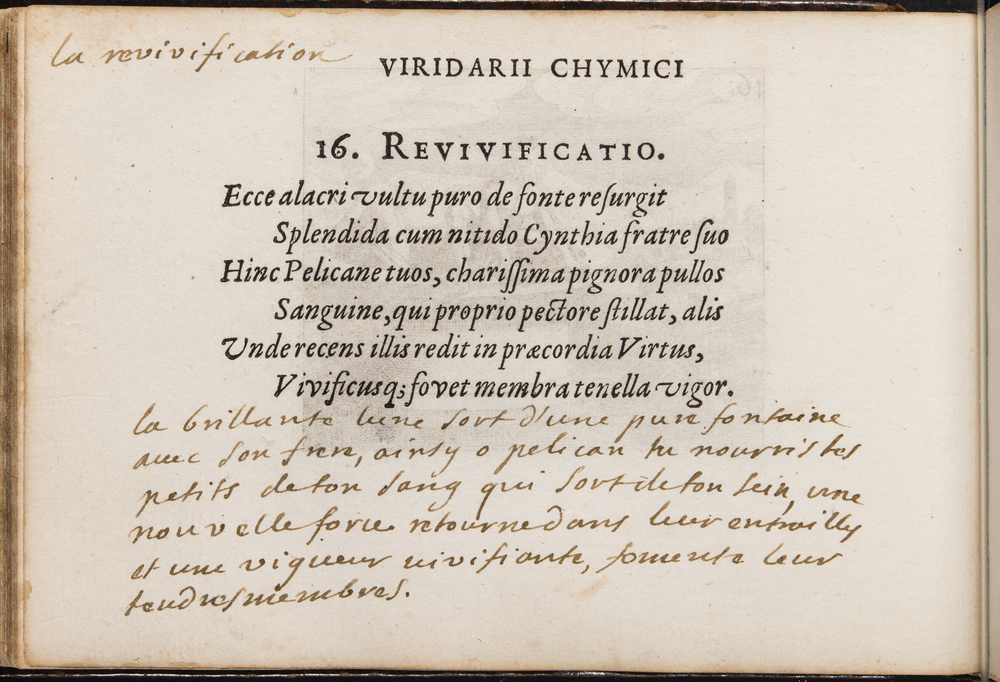 la revivification
VIRIDARII CHYMICI
16. REVIVIFICATIO.
Ecce alacri vultu puro de fonte reſurgit
Splendida cum nitido Cynthia fratre ſuo
Hinc Pelicane tuos, chariſſima pignora pullos
Sanguine, qui proprio pectore ſtillat, alis
Unde recens illis redit in præcordia Virtus,
Vivificusq; fovet membra tenella vigor.
la brillante lune sort d'une pure fontaine
avec son frere, ainsy o pelican tu nourris tes
petits de ton sang qui sort de ton sein, une
nouvelle force retourne dans leur entrailles
et une vigueur vivifiante, fomente leur
tendres membres.